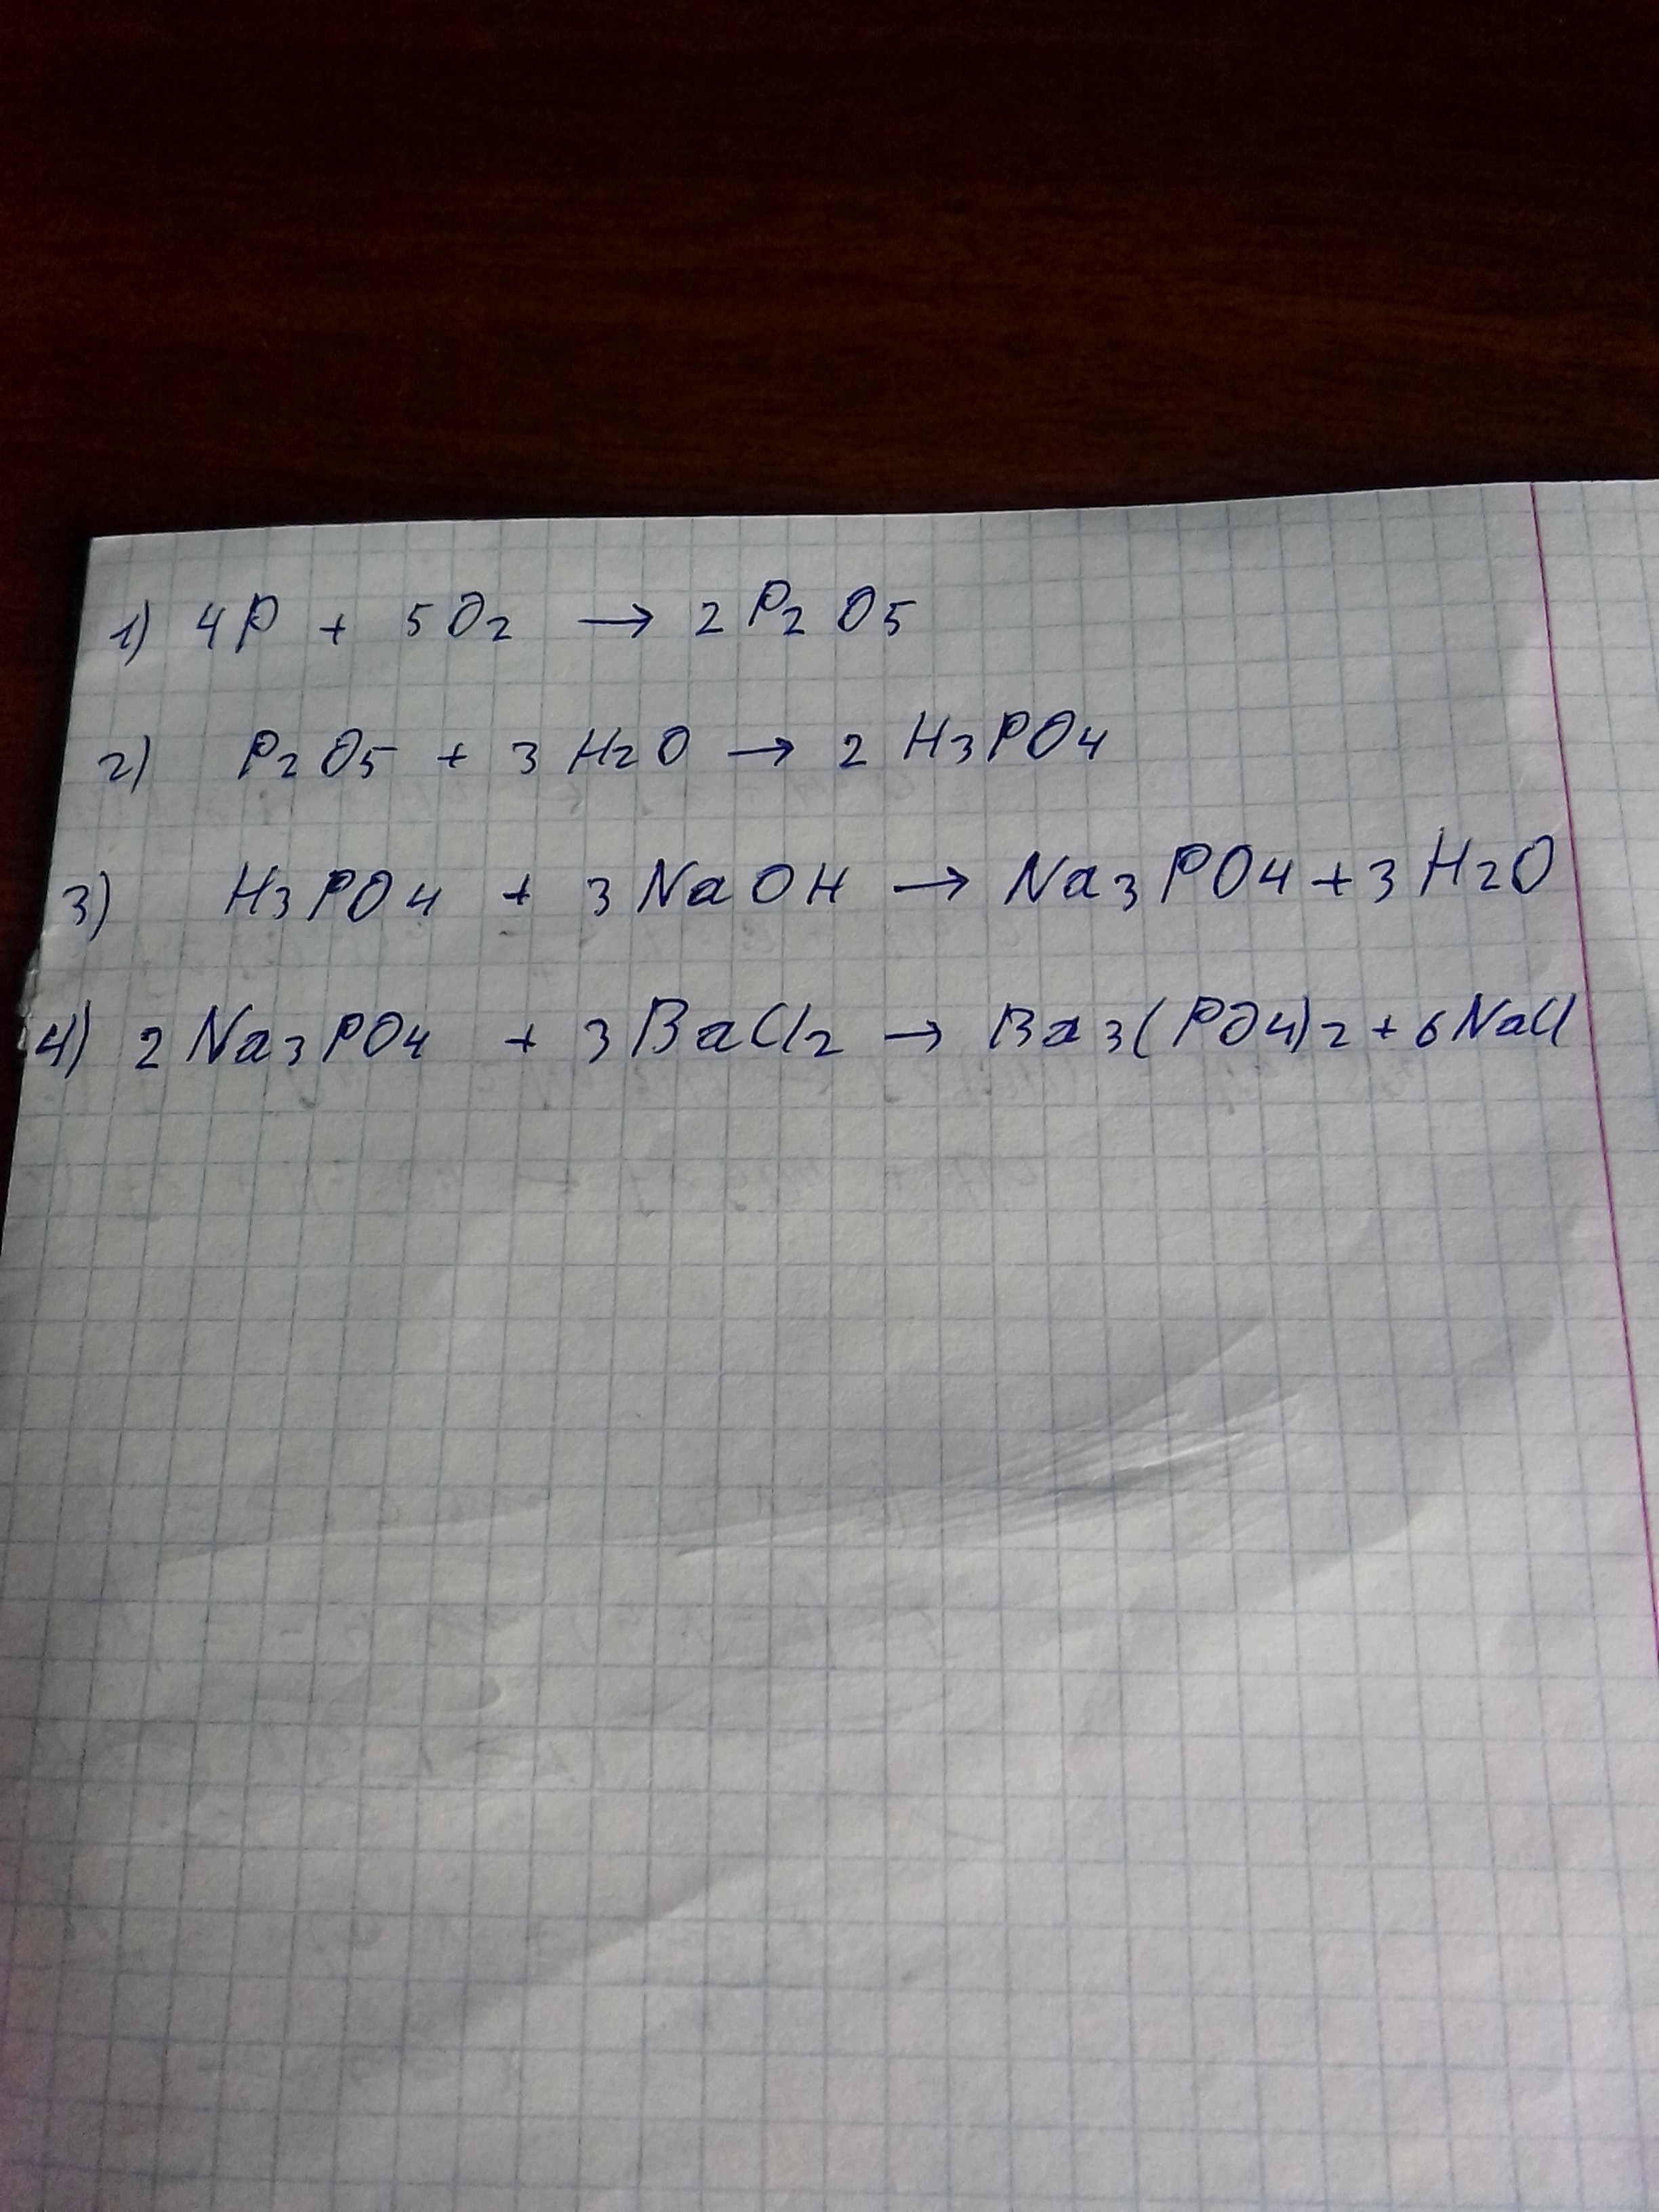 1) 4P + 5O2 → 2P2O5
2) P2O5 + 3H2O → 2H3PO4
3) H3PO4 + 3NaOH → Na3PO4 + 3H2O
4) 2Na3PO4 + 3BaCl2 → Ba3(PO4)2 + 6NaCl